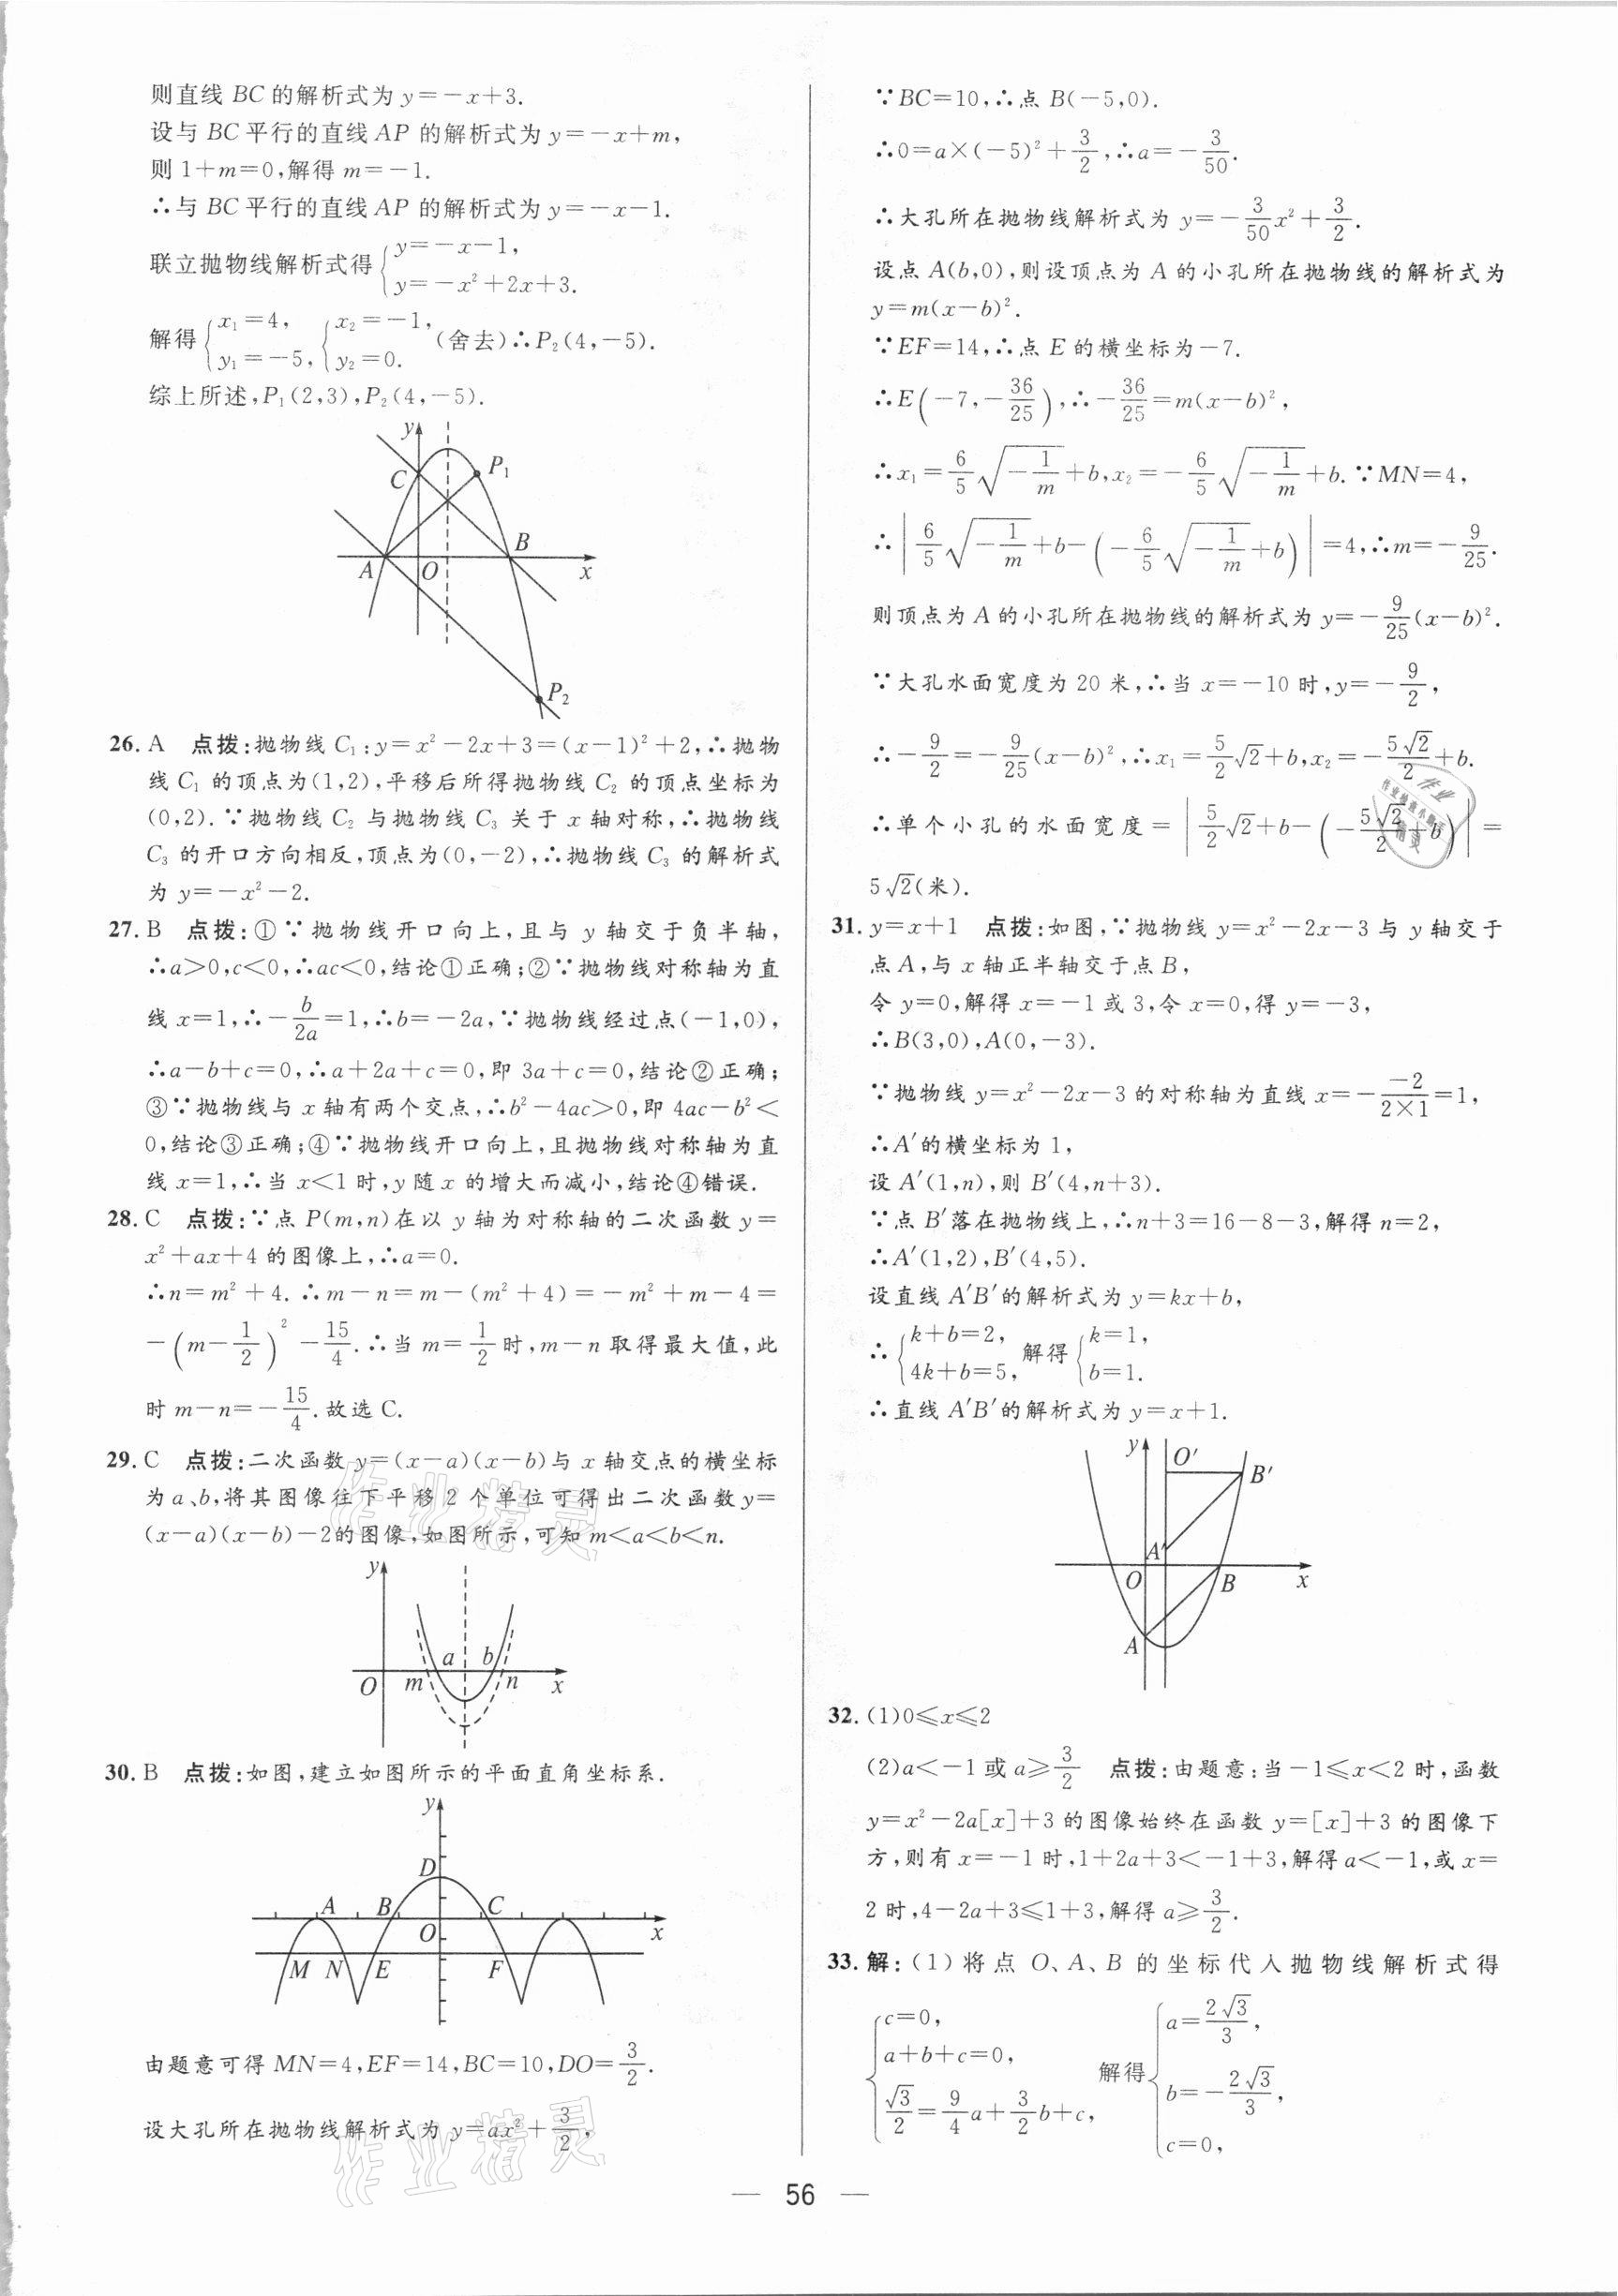 则直线 BC 的解析式为 y=-x+3.
设与 BC 平行的直线 AP 的解析式为 y=-x+m,
则 1+m=0,解得 m=-1.
∴与 BC 平行的直线 AP 的解析式为 y=-x-1.
联立抛物线解析式得{y=-x-1, y=-x²+2x+3.
解得{x₁=4, y₁=-5, {x₂=-1, y₂=0. (舍去)∴P₂(4,-5).
综上所述,P₁(2,3),P₂(4,-5).
y
C
P₁
B
A
O
x
P₂
26. A 点拨:抛物线 C₁:y=x²-2x+3=(x-1)²+2,∴抛物
线 C₁ 的顶点为(1,2),平移后所得抛物线 C₂ 的顶点坐标为
(0,2).∵抛物线 C₂ 与抛物线 C₃ 关于 x 轴对称,∴抛物线
C₃ 的开口方向相反,顶点为(0,-2),∴抛物线 C₃ 的解析式
为 y=-x²-2.
27. B 点拨:①∵抛物线开口向上,且与 y 轴交于负半轴,
∴a>0,c<0,∴ac<0,结论①正确;②∵抛物线对称轴为直
线 x=1,∴-b/2a=1,∴b=-2a,∵抛物线经过点(-1,0),
∴a-b+c=0,∴a+2a+c=0,即 3a+c=0,结论②正确;
③∵抛物线与 x 轴有两个交点,∴b²-4ac>0,即 4ac-b²<
0,结论③正确;④∵抛物线开口向上,且抛物线对称轴为直
线 x=1,∴当 x<1 时,y 随 x 的增大而减小,结论④错误.
28. C 点拨:∵点 P(m,n)在以 y 轴为对称轴的二次函数 y=
x²+ax+4 的图像上,∴a=0.
∴n=m²+4.∴m-n=m-(m²+4)=-m²+m-4=
-(m-1/2)²-15/4.∴当 m=1/2时,m-n 取得最大值,此
时 m-n=-15/4.故选 C.
29. C 点拨:二次函数 y=(x-a)(x-b)与 x 轴交点的横坐标
为 a、b,将其图像往下平移 2 个单位可得出二次函数 y=
(x-a)(x-b)-2的图像,如图所示,可知 m<a<b<n.
y
a
b
O
m
n
x
30. B 点拨:如图,建立如图所示的平面直角坐标系.
y
D
A
B
C
O
x
M
N
E
F
由题意可得 MN=4,EF=14,BC=10,DO=3/2.
设大孔所在抛物线解析式为 y=ax²+3/2,
∵BC=10,∴点 B(-5,0).
∴0=a×(-5)²+3/2,∴a=-3/50.
∴大孔所在抛物线解析式为 y=-3/50x²+3/2.
设点 A(b,0),则设顶点为 A 的小孔所在抛物线的解析式为
y=m(x-b)².
∵EF=14,∴点 E 的横坐标为-7.
∴E(-7,-36/25),∴-36/25=m(x-b)²,
∴x₁=6/5√(-1/m)+b,x₂=-6/5√(-1/m)+b.∵MN=4,
∴|6/5√(-1/m)+b-(-6/5√(-1/m)+b)|=4,∴m=-9/25.
则顶点为 A 的小孔所在抛物线的解析式为 y=-9/25(x-b)².
∵大孔水面宽度为 20 米,∴当 x=-10 时,y=-9/2,
∴-9/2=-9/25(x-b)²,∴x₁=5/2√2+b,x₂=-5√2/2+b.
∴单个小孔的水面宽度=|5/2√2+b-(-5√2/2+b)|=
5√2(米).
31. y=x+1 点拨:如图,∵抛物线 y=x²-2x-3 与 y 轴交于
点 A,与 x 轴正半轴交于点 B,
令 y=0,解得 x=-1 或 3,令 x=0,得 y=-3,
∴B(3,0),A(0,-3).
∵抛物线 y=x²-2x-3 的对称轴为直线 x=--2/2×1=1,
∴A′的横坐标为 1,
设 A′(1,n),则 B′(4,n+3).
∵点 B′落在抛物线上,∴n+3=16-8-3,解得 n=2,
∴A′(1,2),B′(4,5).
设直线 A′B′的解析式为 y=kx+b,
∴{k+b=2, 4k+b=5, 解得{k=1, b=1.
∴直线 A′B′的解析式为 y=x+1.
y
O′
B′
A′
O
B
x
A
32. (1)0≤x≤2
(2)a<-1 或 a≥3/2 点拨:由题意:当-1≤x<2 时,函数
y=x²-2a[x]+3 的图像始终在函数 y=[x]+3 的图像下
方,则有 x=-1 时,1+2a+3<-1+3,解得 a<-1,或 x=
2 时,4-2a+3≤1+3,解得 a≥3/2.
33. 解:(1)将点 O、A、B 的坐标代入抛物线解析式得
{c=0, a+b+c=0, √3/2=9/4a+3/2b+c, 解得{a=2√3/3, b=-2√3/3, c=0,
— 56 —
作业精灵
作业精灵